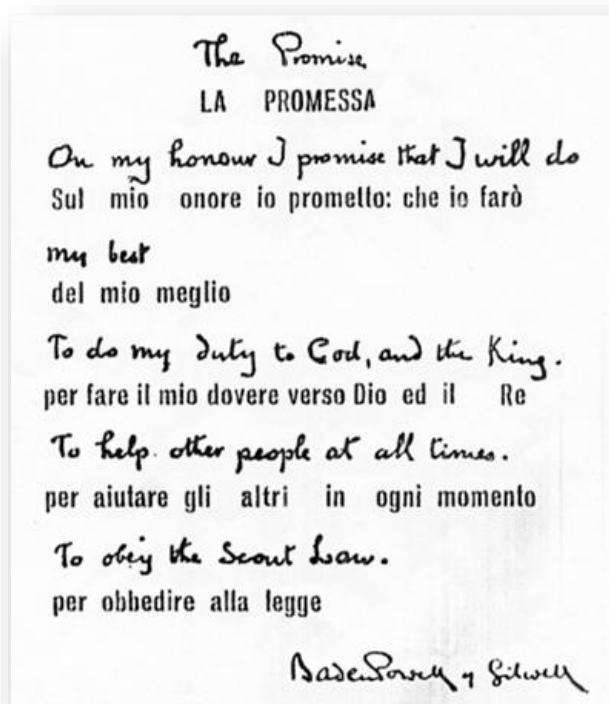 The Promise
LA PROMESSA
On my honour I promise that I will do
Sul mio onore io prometto: che io farò
my best
del mio meglio
To do my duty to God, and the King.
per fare il mio dovere verso Dio ed il Re
To help other people at all times.
per aiutare gli altri in ogni momento
To obey the Scout Law.
per obbedire alla legge
Baden Powell of Gilwell